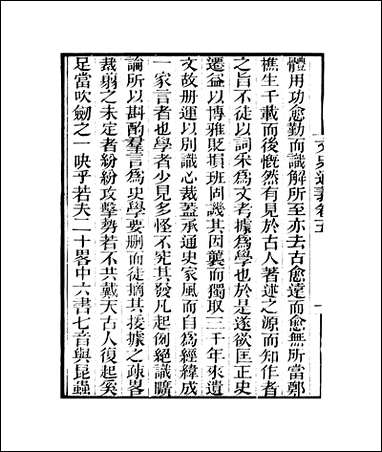 文史通義卷五　一
體用功愈勤而識解所至亦去古愈遠而愈無所當鄭
樵生千載而後慨然有見於古人著述之源而知作者
之旨不徒以詞采爲文考據爲學也於是遂欲匡正史
遷益以博雅貶損班固譏其因襲而獨取三千年來遺
文故册運以別識心裁蓋承通史家風而自爲經緯成
一家言者也學者少見多怪不究其發凡起例絕識曠
論所以斟酌羣言爲史學要刪而徒摘其援據之疎畧
裁翦之未定者紛紛攻擊勢若不共戴天古人復起奚
足當吹劒之一吷乎若夫二十畧中六書七音與昆蟲